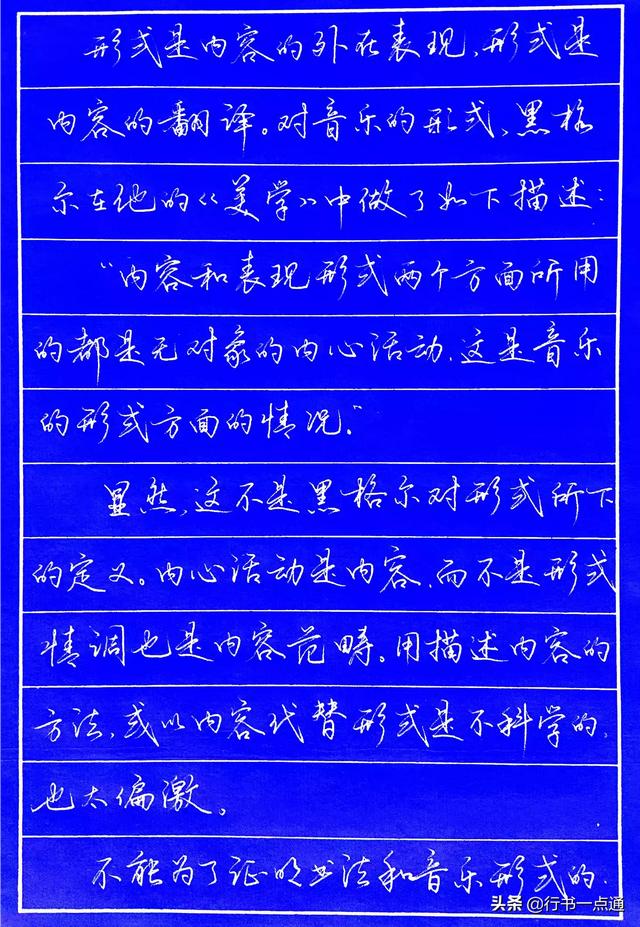 形式是内容的外在表现,形式是
内容的翻译。对音乐的形式,黑格
尔在他的《美学》中做了如下描述:
“内容和表现形式两个方面所用
的都是无对象的内心活动,这是音乐
的形式方面的情况。”
显然,这不是黑格尔对形式所下
的定义。内心活动是内容,而不是形式
情调也是内容范畴。用描述内容的
方法,或以内容代替形式是不科学的,
也太偏激。
不能为了证明书法和音乐形式的
头条@行书一点通